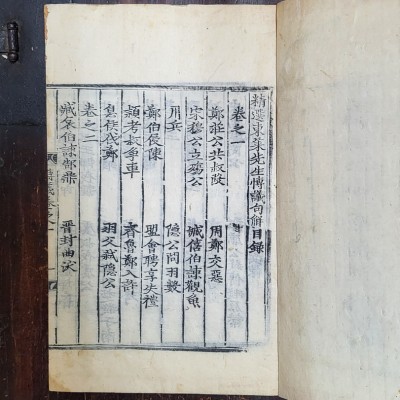 精選東萊先生博議句解目錄
卷之一
鄭莊公共叔段 周鄭交惡
宋穆公立殤公 臧僖伯諫觀魚
用兵 隱公問羽數
鄭伯侵陳 盟會聘享失禮
潁考叔爭車 齊魯鄭入許
息侯伐鄭 羽父弒隱公
卷之二
臧哀伯諫郜鼎 晉封曲沃